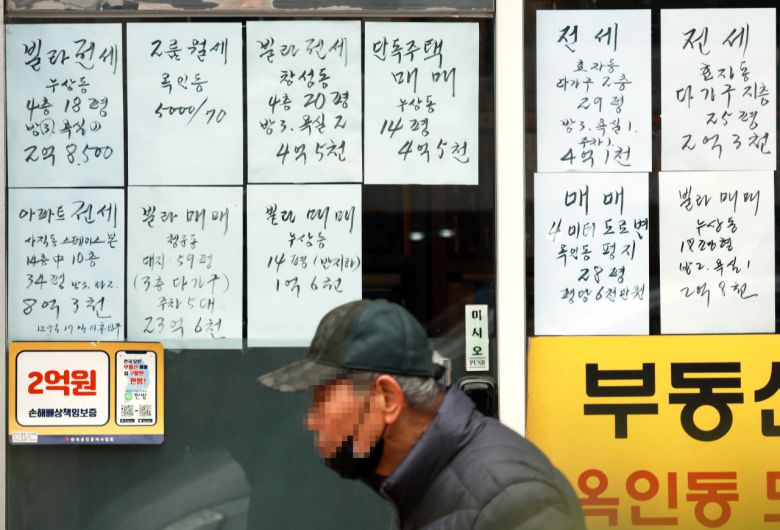 빌라 전세
누상동
4층 18평
방③. 욕실①
2억 8,500
2룸 월세
옥인동
5000/70
빌라 전세
창성동
4층 20평
방3. 욕실2
4억 5천
단독주택
매매
누상동
14평
4억 5천
전세
효자동
다가구 2층
29평
방3. 욕실1.
주차1.
4억 1천
전세
효자동
다가구 지층
25평
2억 3천
아파트 전세
사직동 스페이스본
14층中 10층
34평
8억 3천
빌라 매매
대지: 59평
(3층 다가구)
주차 5대
23억 6천
빌라 매매
누상동
14평 (반지하)
1억 6천
매매
4미터 도로변
옥인동 평지
28평
평당 6천만원
빌라 매매
누상동
방2. 욕실1
2억 8천
미시오
PUSH
2억원
손해배상책임보증
한방
한국공인중개사협회
부동산
옥인동